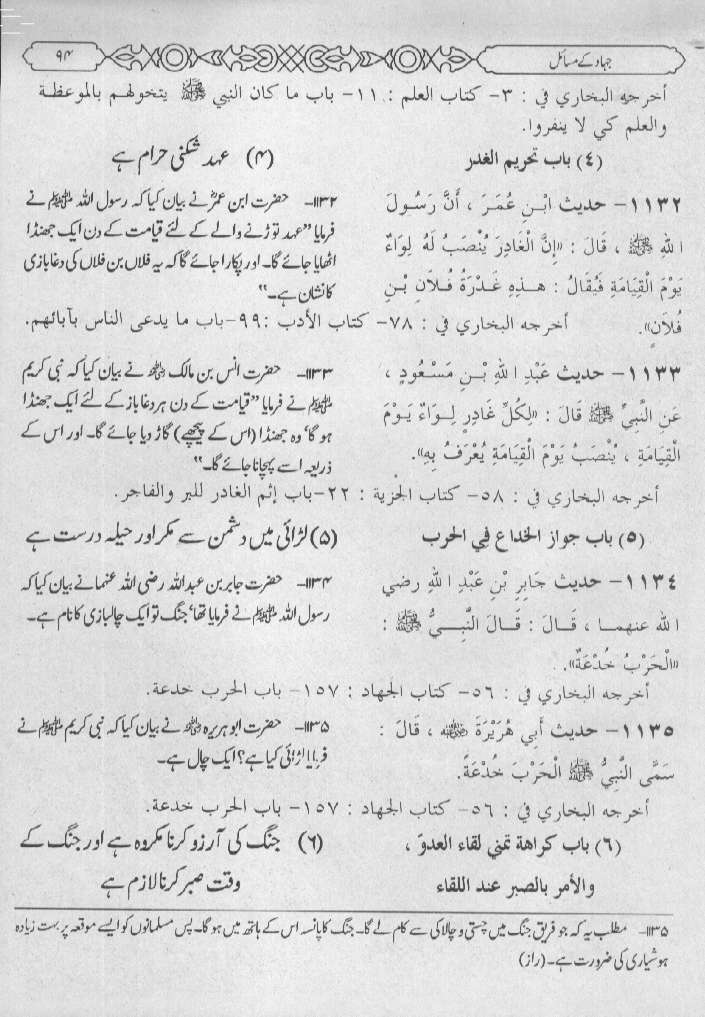 جہاد کے مسائل
۹۴
أخرجه البخاري في : ٣- كتاب العلم : ١١- باب ما كان النبي ﷺ يتخولهم بالموعظة
والعلم كي لا ينفروا.
(٤) باب تحريم الغدر
١١٣٢- حديث ابْنِ عُمَرَ ، أَنَّ رَسُولَ
اللهِ ﷺ ، قَالَ : «إِنَّ الْغَادِرَ يُنْصَبُ لَهُ لِوَاءٌ
يَوْمَ الْقِيَامَةِ فَيُقَالُ : هـذِهِ غَدْرَةُ فُلَانِ بْنِ
فُلَانٍ».
(۴) عہد شکنی حرام ہے
۱۱۳۲- حضرت ابن عمرؓ نے بیان کیا کہ رسول اللہ ﷺ نے
فرمایا ”عہد توڑنے والے کے لئے قیامت کے دن ایک جھنڈا
اٹھایا جائے گا۔ اور پکارا جائے گا کہ یہ فلاں بن فلاں کی دغابازی
کا نشان ہے۔“
أخرجه البخاري في : ٧٨- كتاب الأدب : ٩٩-باب ما يدعى الناس بآبائهم.
١١٣٣- حديث عَبْدِ اللهِ بْنِ مَسْعُودٍ ،
عَنِ النَّبِيِّ ﷺ قَالَ : «لِكُلِّ غَادِرٍ لِوَاءٌ يَوْمَ
الْقِيَامَةِ ، يُنْصَبُ يَوْمَ الْقِيَامَةِ يُعْرَفُ بِهِ».
۱۱۳۳- حضرت انس بن مالک ؓ نے بیان کیا کہ نبی کریم
ﷺ نے فرمایا ”قیامت کے دن ہر دغاباز کے لئے ایک جھنڈا
ہو گا‘ وہ جھنڈا (اس کے پیچھے) گاڑ دیا جائے گا۔ اور اس کے
ذریعہ اسے پہچانا جائے گا۔“
أخرجه البخاري في : ٥٨- كتاب الجزية : ٢٢-باب إثم الغادر للبر والفاجر.
(٥) باب جواز الخداع في الحرب
١١٣٤- حديث جَابِرِ بْنِ عَبْدِ اللهِ رضي
الله عنهما ، قَالَ : قَالَ النَّبِيُّ ﷺ :
«الْحَرْبُ خُدْعَةٌ».
(۵) لڑائی میں دشمن سے مکر اور حیلہ درست ہے
۱۱۳۴- حضرت جابر بن عبداللہ رضی اللہ عنہما نے بیان کیا کہ
رسول اللہ ﷺ نے فرمایا تھا‘ جنگ تو ایک چالبازی کا نام ہے۔
أخرجه البخاري في : ٥٦- كتاب الجهاد : ١٥٧- باب الحرب خدعة.
١١٣٥- حديث أَبِي هُرَيْرَةَ ؓ ، قَالَ :
سَمَّى النَّبِيُّ ﷺ الْحَرْبَ خُدْعَةً.
۱۱۳۵- حضرت ابو ہریرہ ؓ نے بیان کیا کہ نبی کریم ﷺ نے
فرمایا لڑائی کیا ہے؟ ایک چال ہے۔
أخرجه البخاري في : ٥٦- كتاب الجهاد : ١٥٧- باب الحرب خدعة.
(٦) باب كراهة تمني لقاء العدوّ ،
والأمر بالصبر عند اللقاء
(۶) جنگ کی آرزو کرنا مکروہ ہے اور جنگ کے
وقت صبر کرنا لازم ہے
۱۱۳۵- مطلب یہ کہ جو فریق جنگ میں چستی و چالاکی سے کام لے گا۔ جنگ کا پانسہ اس کے ہاتھ میں ہو گا۔ پس مسلمانوں کو ایسے موقعہ پر بہت زیادہ
ہوشیاری کی ضرورت ہے۔ (راز)